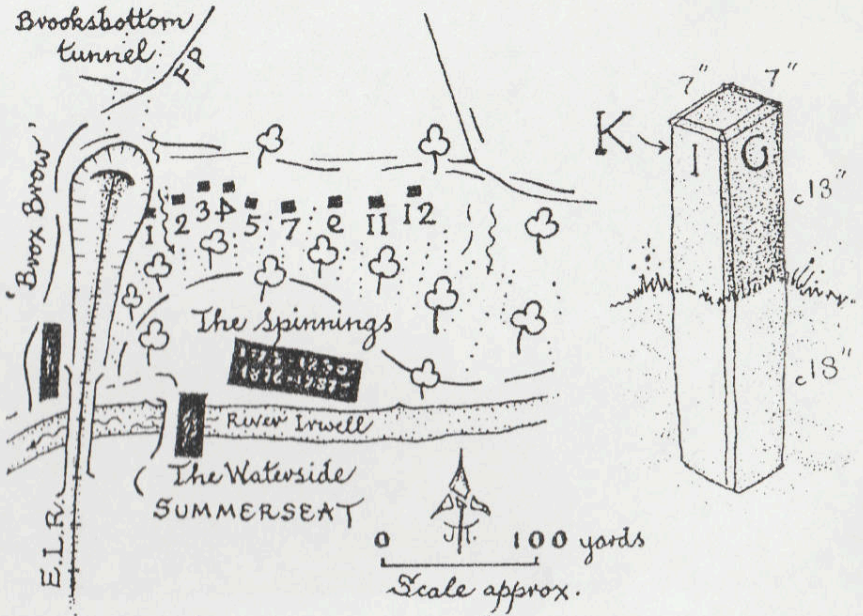 Brooksbottom
tunnel
FP
'Brox Brow'
1 2 3 4 5 7 e 11 12
The Spinnings
River Irwell
The Waterside
SUMMERSEAT
E.L.R.
JH.
0 100 yards
Scale approx.
7" 7"
K
I G
c13"
c18"